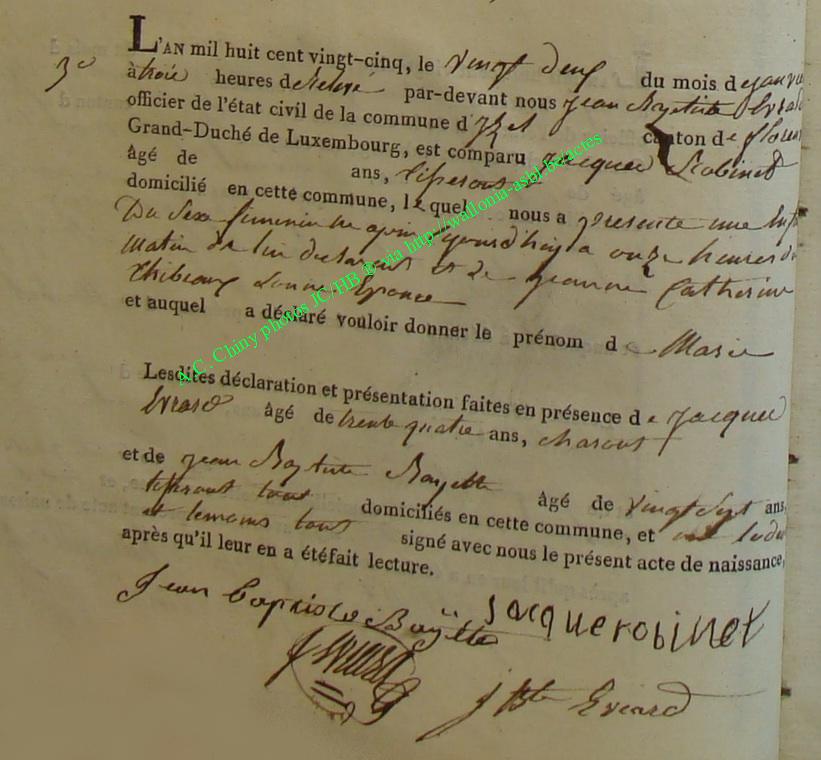 3e
L'AN mil huit cent vingt-cinq, le vingt deux du mois de janvi
à trois heures de relevé par-devant nous jean Baptiste Evrard
officier de l'état civil de la commune d'Izel canton de floren
Grand-Duché de Luxembourg, est comparu jacques Robinet
âgé de ans, tisserant
domicilié en cette commune, lequel nous a présenté une enf
Du Sexe feminin né aujourd'huy a onze heures du
matin de lui declarant et de jeanne Catherine
Thibeaux Sonne Epouse
et auquel a déclaré vouloir donner le prénom de Marie
Lesdites déclaration et présentation faites en présence de jacques
Evrard âgé de trente quatre ans,
et de jean Baptiste Bayette âgé de vingt sept ans,
tisserant tous domiciliés en cette commune, et
et temoins tous signé avec nous le présent acte de naissance,
après qu'il leur en a étéfait lecture.
Jean Baptiste Bayette jacquerobinet
J Evrard
j Bte Evrard
A.C. Chiny photos JC/HB ® via http://wallonia-asbl.be/actes